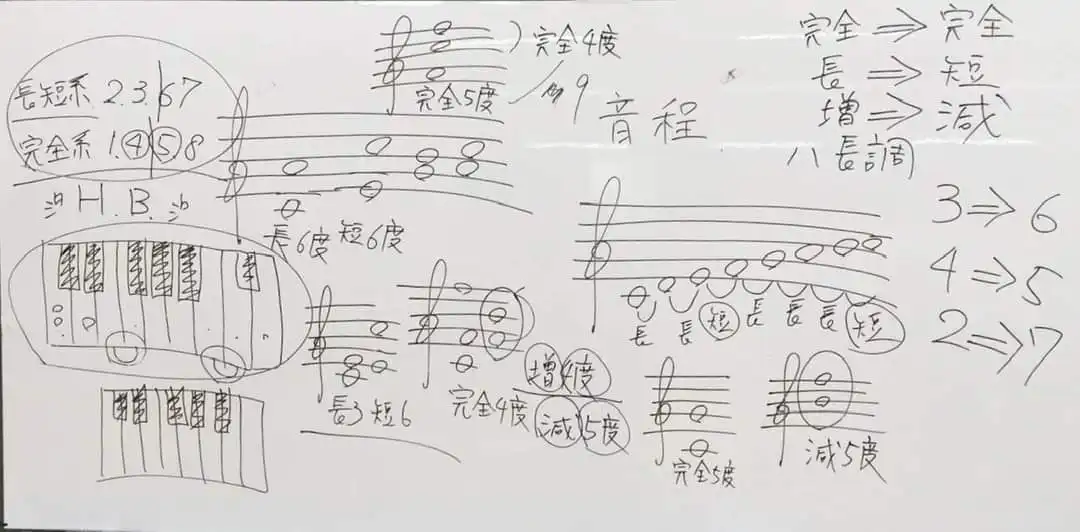 長短系 2.3.67
完全系 1.④⑤8
H.B.
完全4度
完全5度
9
音程
完全⇒完全
長⇒短
増⇒減
ハ長調
3⇒6
4⇒5
2⇒7
長6度 短6度
長3 短6
完全4度
増4度
減5度
長 長 短 長 長 長 短
完全5度
減5度